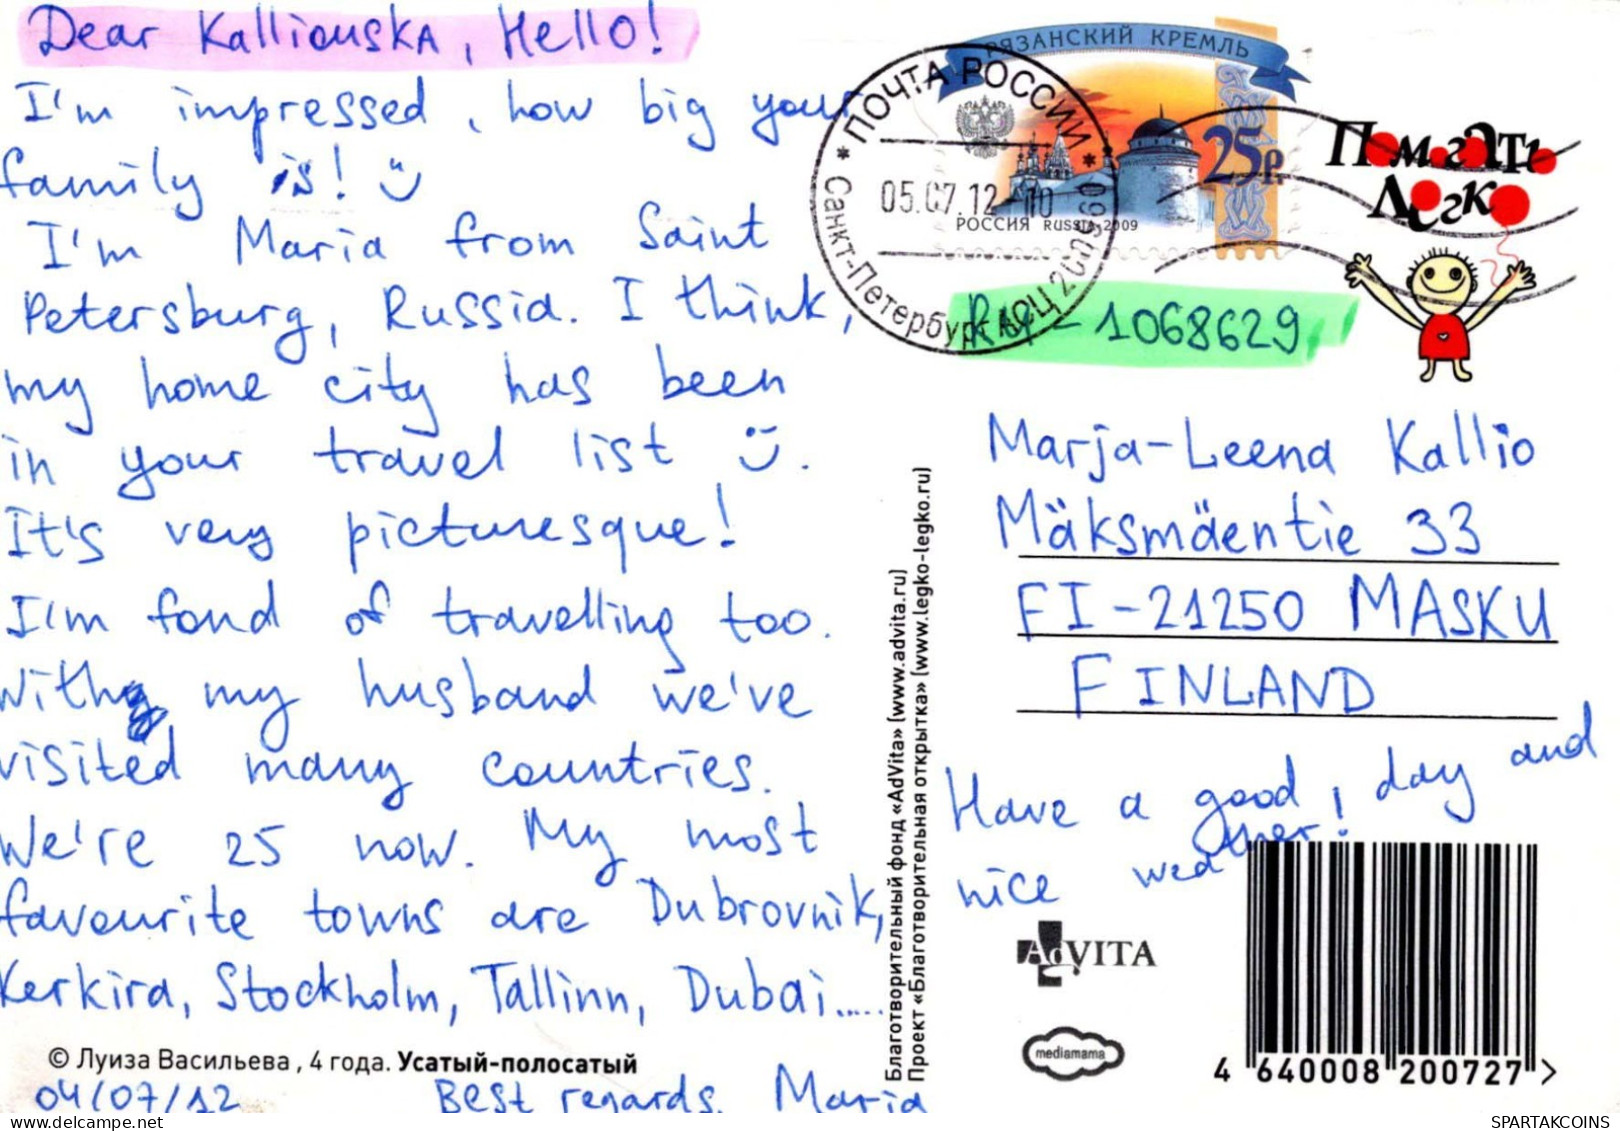 Dear Kalliouska, Hello!
I'm impressed, how big your
family is! ت
I'm Maria from Saint
Petersburg, Russia. I think,
my home city has been
in your travel list ت.
It's very picturesque!
I'm fond of travelling too.
With my husband we've
visited many countries.
We're 25 now. My most
favourite towns are Dubrovnik,
Kerkira, Stockholm, Tallinn, Dubai.....
© Луиза Васильева, 4 года. Усатый-полосатый
04/07/12 Best regards, Maria
Благотворительный фонд «AdVita» (www.advita.ru)
Проект «Благотворительная открытка» (www.legko-legko.ru)
РЯЗАНСКИЙ КРЕМЛЬ
25р.
РОССИЯ RUSSIA 2009
* ПОЧТА РОССИИ *
05.07.12 10
Санкт-Петербург АСЦ
Помогать
Легко
RU-1068629
Marja-Leena Kallio
Mäksmäentie 33
FI-21250 MASKU
FINLAND
Have a good day and
nice weather!
AdVITA
mediamama
4 640008 200727 >
SPARTAKCOINS